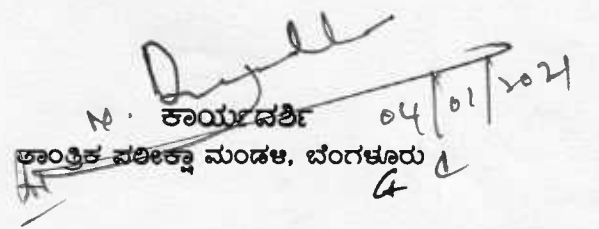 ಕಾರ್ಯದರ್ಶಿ 04/01/2021
ತಾಂತ್ರಿಕ ಪರೀಕ್ಷಾ ಮಂಡಳಿ, ಬೆಂಗಳೂರು